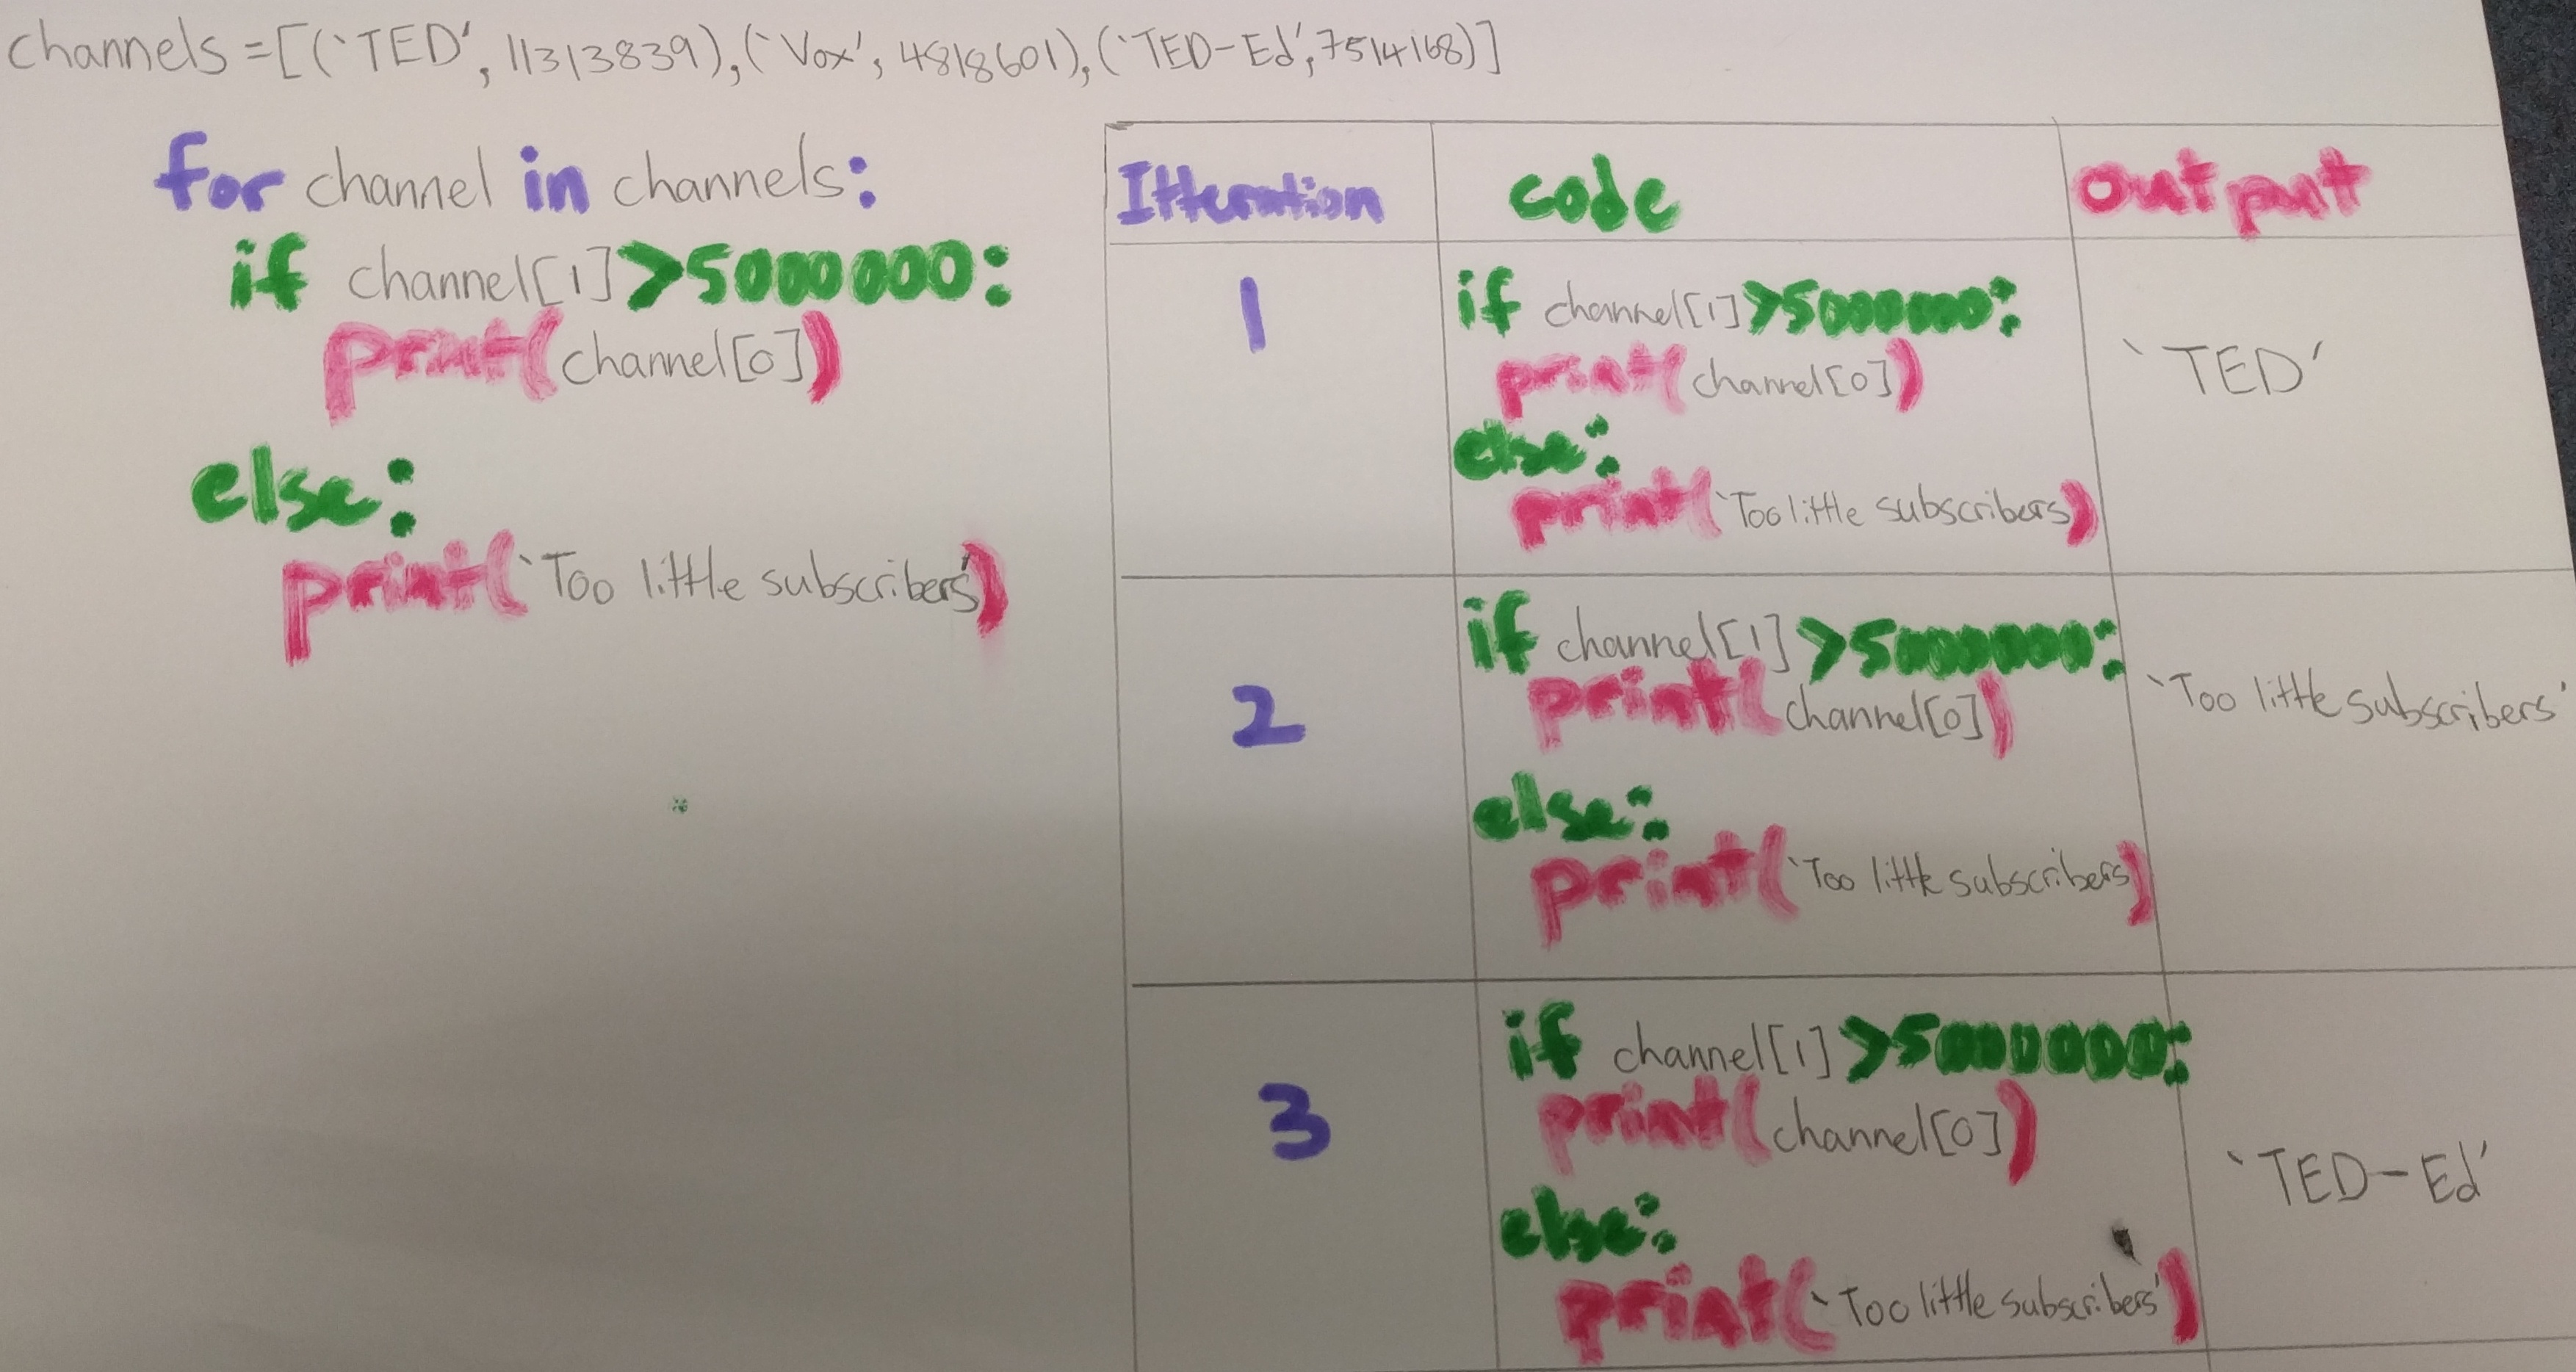 channels =[(`TED', 11313839),(`Vox', 4818601),(`TED-Ed',7514168)]
for channel in channels:
if channel[1]>5000000:
print(channel[0])
else:
print(`Too little subscribers')
Itteration code output
1
if channel[1]>5000000:
print(channel[0])
else:
print(`Too little subscribers)
`TED'
2
if channel[1]>5000000:
print(channel[0])
else:
print(`Too little subscribers)
`Too little subscribers'
3
if channel[1]>5000000:
print(channel[0])
else:
print(`Too little subscribers')
`TED-Ed'